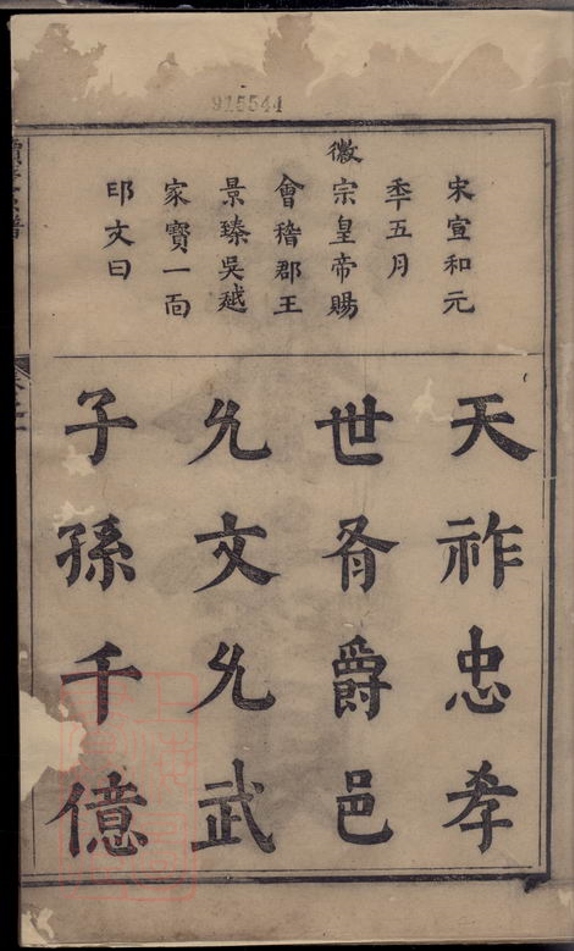 915544
宋宣和元
秊五月
徽宗皇帝賜
會稽郡王
景臻吳越
家寶一面
印文曰
天祚忠孝
世胥爵邑
允文允武
子孫千億